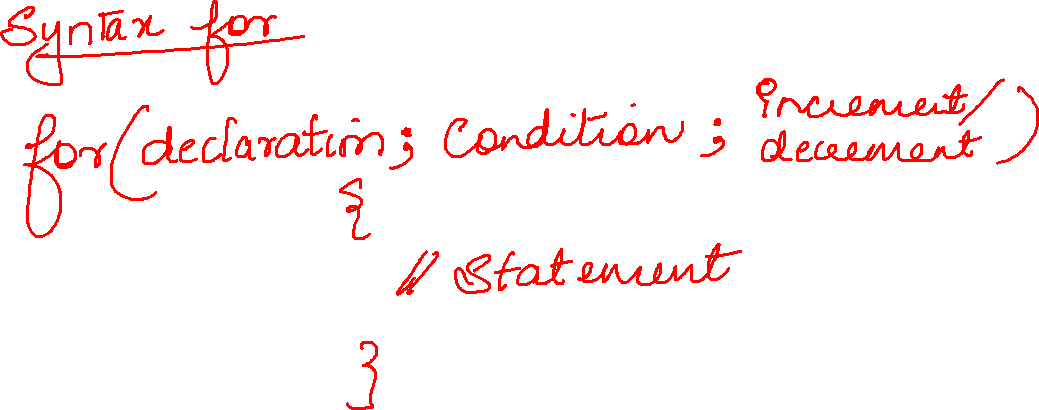 Syntax for
for(declaration; Condition; increment/decrement)
{
// Statement
}